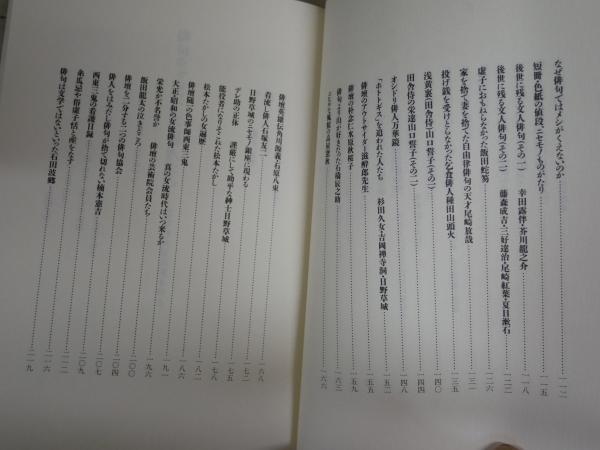 なぜ俳句ではメシがくえないのか 一一二
短冊・色紙の値段 ニセモノものがたり 一一五
後世に残る文人俳句(その一) 幸田露伴・芥川龍之介 一一八
後世に残る文人俳句(その二) 藤森成吉・三好達治・尾崎紅葉・夏目漱石 一二二
虚子におもねらなかった飯田蛇笏 一二六
家を捨て妻を捨てた自由律俳句の天才尾崎放哉
投げ銭を受けとらなかった乞食俳人種田山頭火 一三五
浅黄裏(田舎侍)山口誓子(その一) 一四〇
田舎侍の栄達山口誓子(その二) 一四四
オシドリ俳人万華鏡 一四八
「ホトトギス」を追われた人たち 杉田久女・吉岡禅寺洞・日野草城
俳壇のアウトサイダー 滋酔郎先生 一五五
俳壇の朴念仁水原秋桜子 一五九
俳句より山が好きだった石橋辰之助 一六三
一六六
俳壇英雄伝角川源義・石原八束
着流し俳人石塚友二
日野草城のニセモノ銀座に現わる
テレ助の正体 謹厳にして助平な紳士日野草城 一七五
能役者になりそこねた松本たかし 一七八
松本たかしの女遍歴 一八二
俳壇随一の色事師西東三鬼 一八六
大正・昭和の女流俳句 真の女流時代はいつ来るか 一九一
栄光か不名誉か 俳壇の芸術院会員たち 一九六
飯田龍太の泣きどころ 二〇〇
俳壇を二分する二つの俳句協会 二〇四
俳人をはみだし俳句が捨て切れない楠本憲吉 二〇七
西東三鬼の看護日録 二〇九
糸瓜忌や俗虚子恬と座をなす 二一二
俳句は文学ではないといった石田波郷 二一六
二一九
一八八